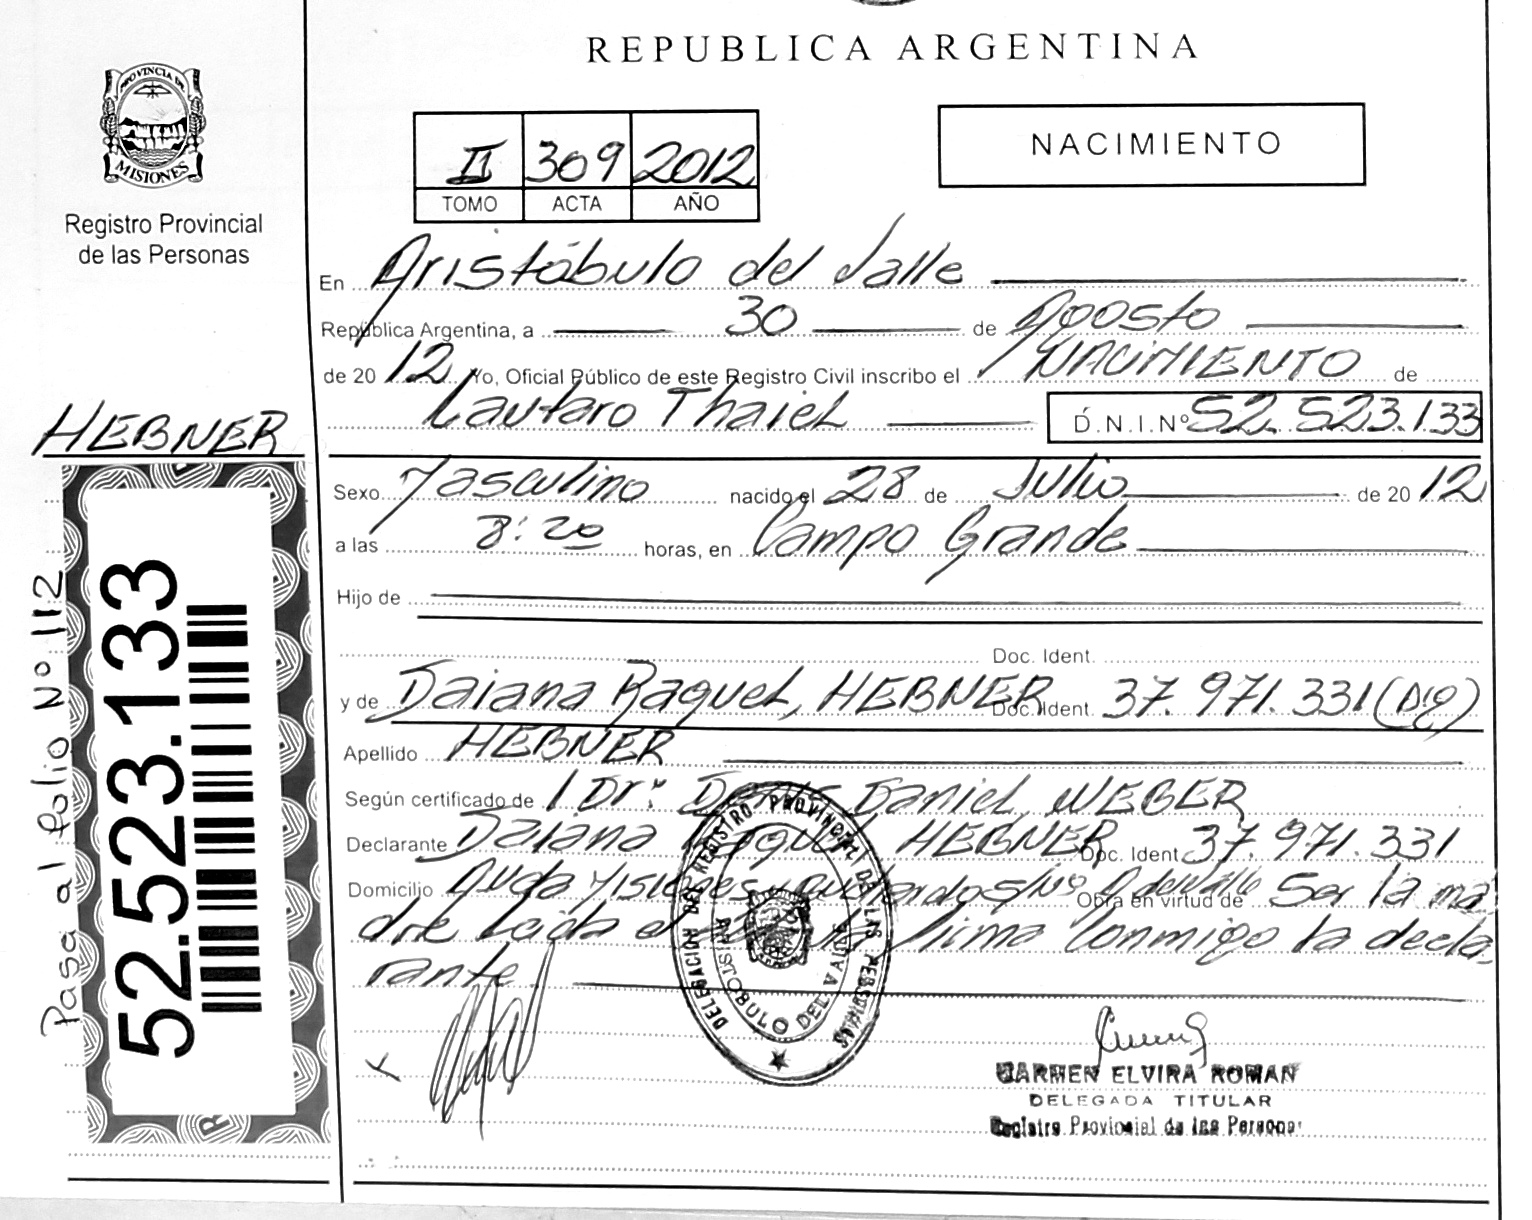 REPUBLICA ARGENTINA
PROVINCIA DE
MISIONES
Registro Provincial
de las Personas
II 309 2012
TOMO ACTA AÑO
NACIMIENTO
En Aristóbulo del Valle
República Argentina, a 30 de Agosto
de 2012 Yo, Oficial Público de este Registro Civil inscribo el NACIMIENTO de
Lautaro Thaiel D.N.I.Nº 52.523.133
HEBNER
Sexo Masculino nacido el 28 de Julio de 2012
a las 8:20 horas, en Campo Grande
Hijo de
Doc. Ident.
y de Daiana Raquel, HEBNER Doc. Ident 37.971.331 (Dig)
Apellido HEBNER
Según certificado de / Dr: Daniel WEBER
Declarante Daiana Raquel HEBNER Doc. Ident 37.971.331
Domicilio Avda Misiones S/Nº A del Valle Obra en virtud de Ser la ma
dre Leída el firma Conmigo la decla
rante
DELEGACION DEL REGISTRO PROVINCIAL DE LAS PERSONAS
ARISTOBULO DEL VALLE
CARMEN ELVIRA ROMAN
DELEGADA TITULAR
Registro Provincial de las Personas
52.523.133
Pasa al folio Nº 112